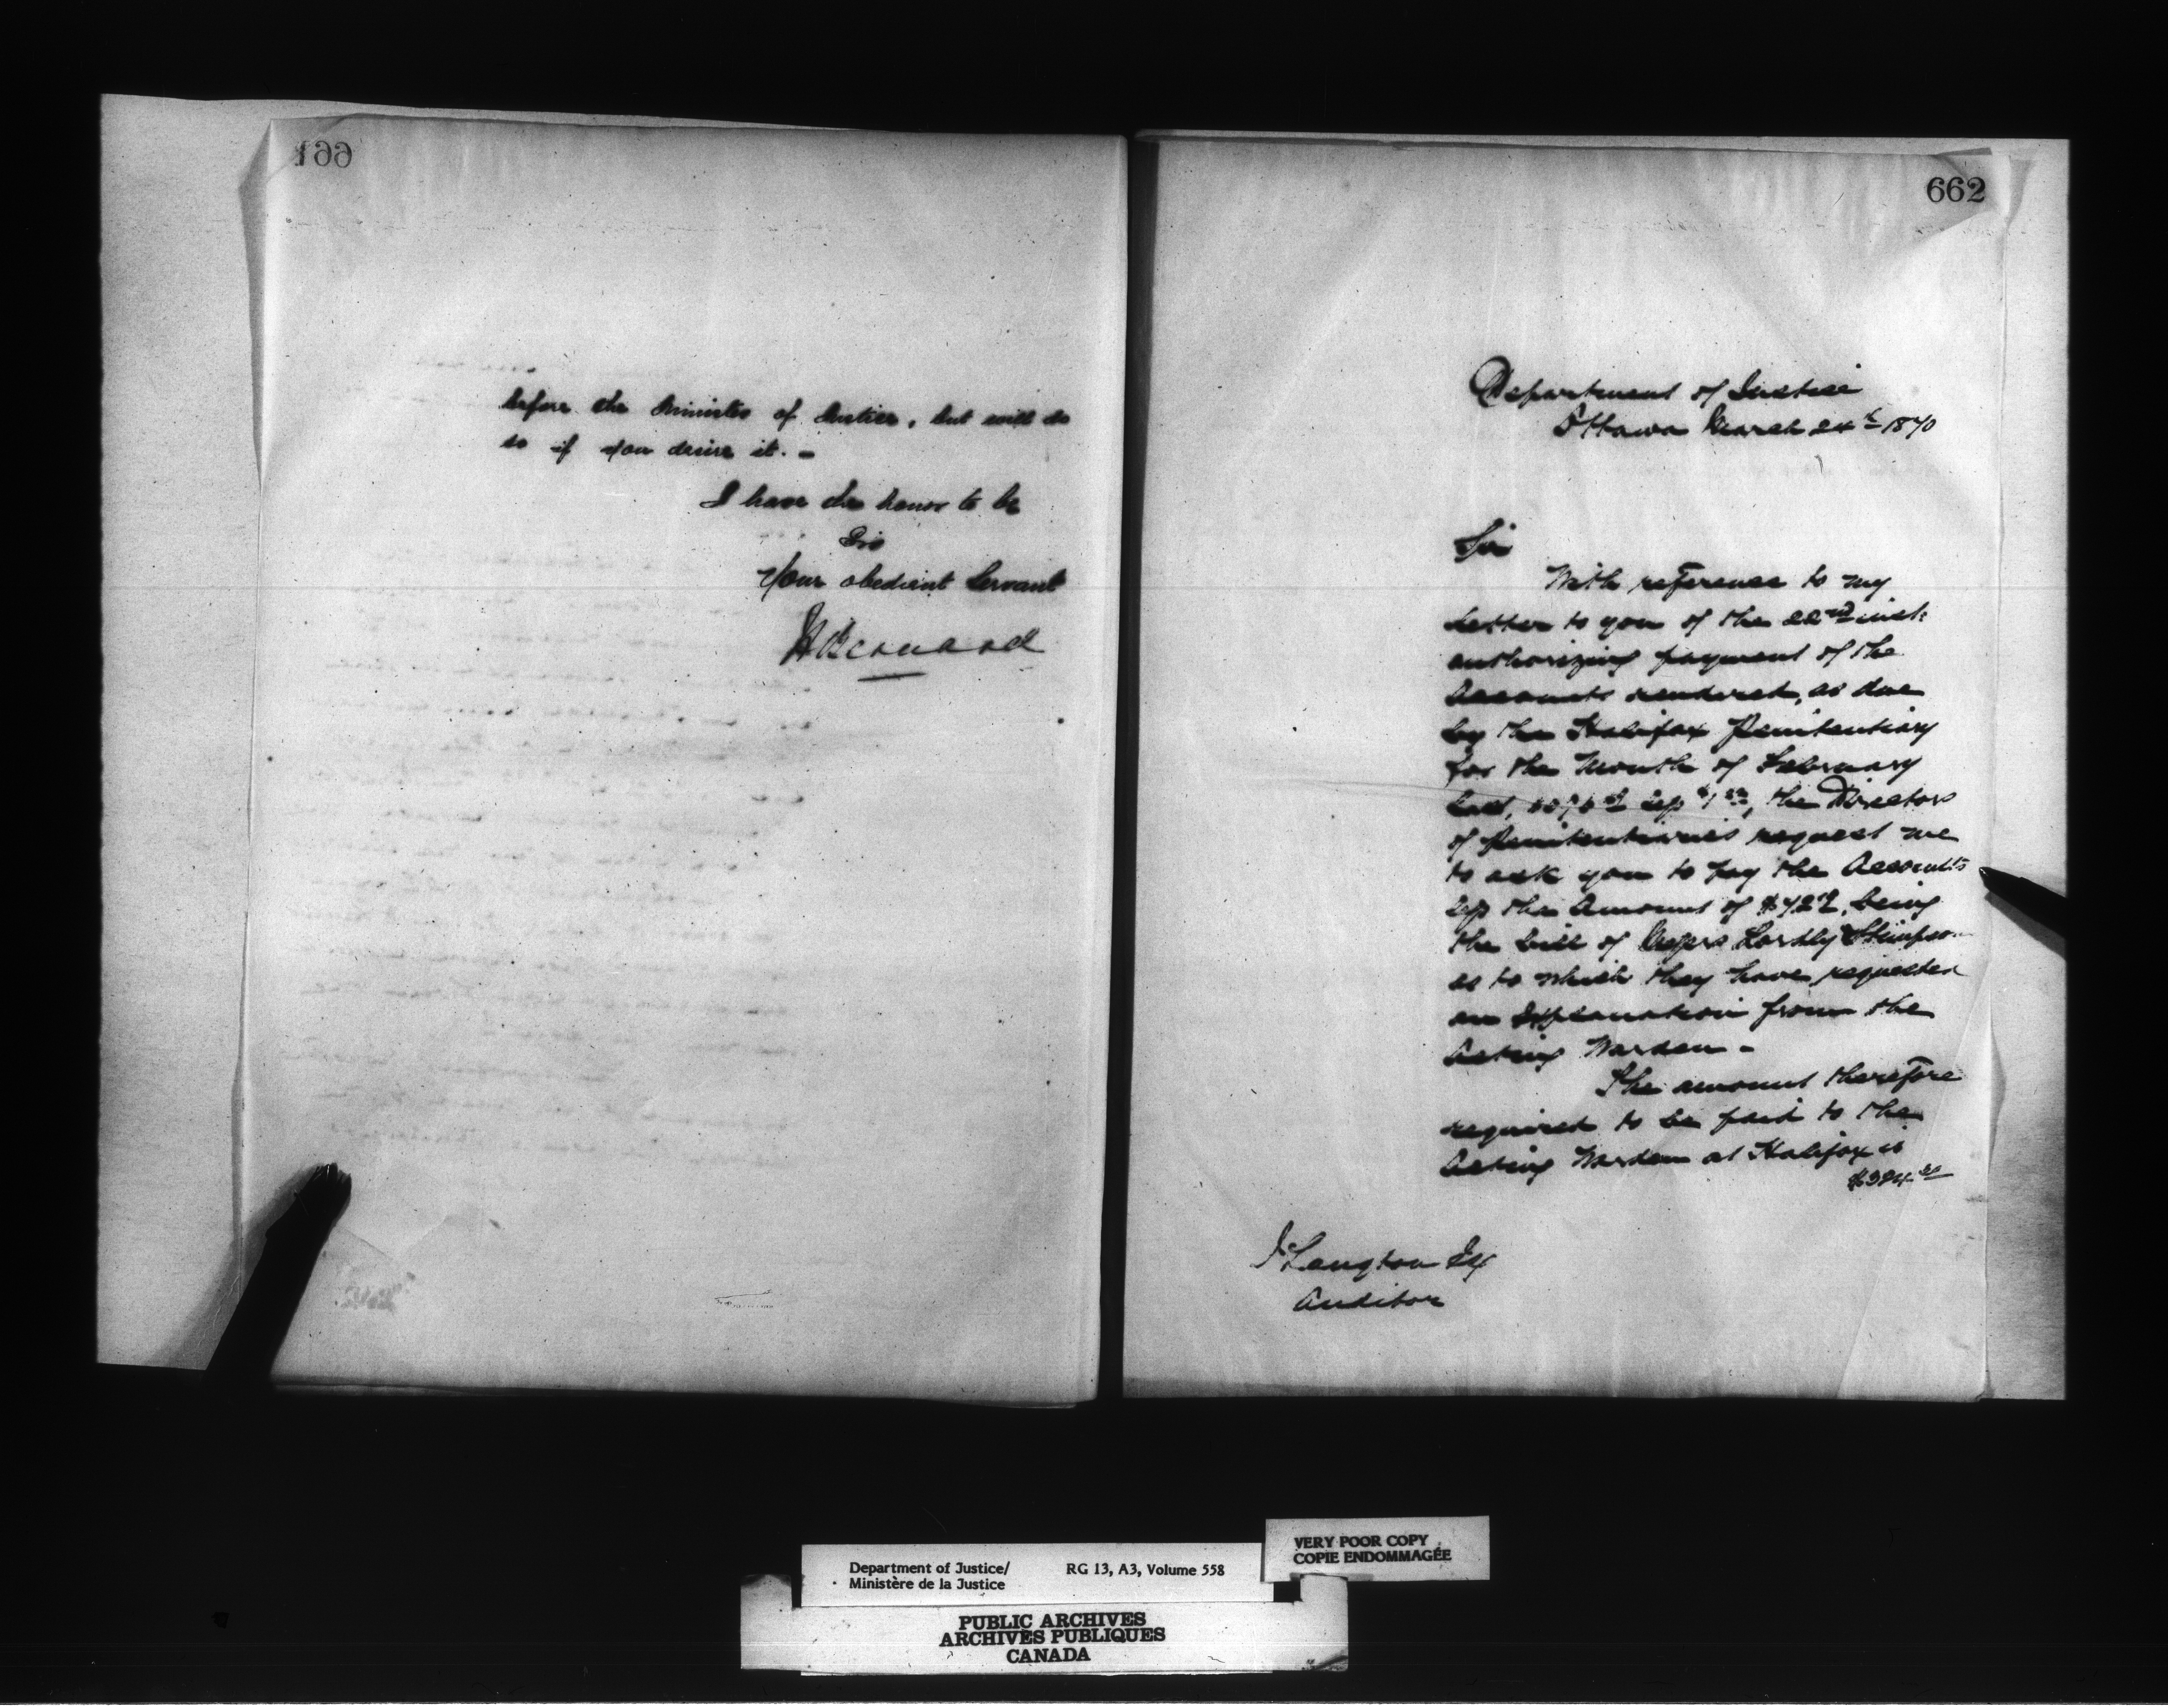 661
before the Minister of Justice, but will do
so if you desire it. –
I have the honor to be
Sir
Your obedient Servant
H Bernard
662
Department of Justice
Ottawa March 24th 1870
Sir
With reference to my
letter to you of the 22nd inst:
authorizing payment of the
Accounts rendered, as due
by the Halifax Penitentiary
for the Month of February
last, the Directors
of Penitentiaries request me
to ask you to pay the Accounts
less the Amount of being
the bill of Messrs Lordly Stimpson
as to which they have requested
an Explanation from the
Acting Warden –
The amount therefore
required to be paid to the
Acting Warden at Halifax is
J Langton Esq
Auditor
Department of Justice/
Ministère de la Justice
RG 13, A3, Volume 558
VERY POOR COPY
COPIE ENDOMMAGÉE
PUBLIC ARCHIVES
ARCHIVES PUBLIQUES
CANADA